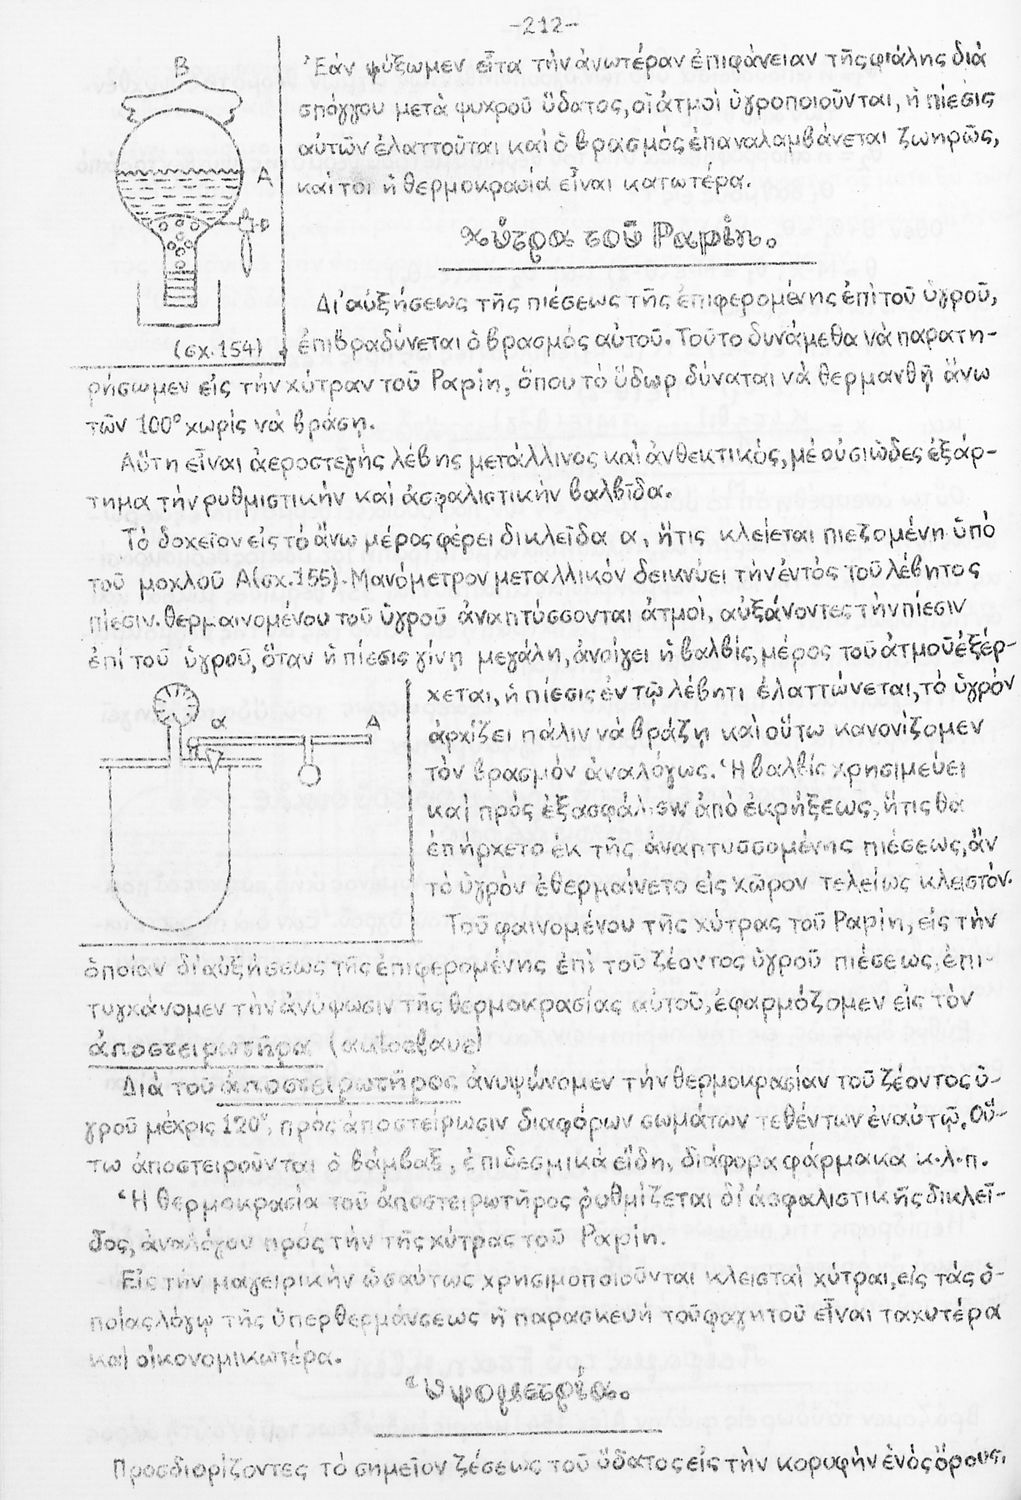 -212-
Β
Ἐάν ψύξωμεν εἶτα τήν ἀνωτέραν ἐπιφάνειαν τῆς φιάλης διά
σπόγγου μετὰ ψυχροῦ ὕδατος, οἱ ἀτμοί ὑγροποιοῦνται, ἡ πίεσις
αὐτῶν ἐλαττοῦται καί ὁ βρασμός ἐπαναλαμβάνεται ζωηρῶς,
Α
καίτοι ἡ θερμοκρασία εἶναι κατωτέρα.
χύτρα τοῦ Papin.
Δι' αὐξήσεως τῆς πιέσεως τῆς ἐπιφερομένης ἐπί τοῦ ὑγροῦ,
(σχ.154)
ἐπιβραδύνεται ὁ βρασμός αὐτοῦ. Τοῦτο δυνάμεθα νὰ παρατη-
ρήσωμεν εἰς τήν χύτραν τοῦ Papin, ὅπου τό ὕδωρ δύναται νὰ θερμανθῇ ἄνω
τῶν 100° χωρίς νὰ βράσῃ.
Αὕτη εἶναι ἀεροστεγής λέβης μετάλλινος καί ἀνθεκτικός, μέ οὐσιῶδες ἐξάρ-
τημα τήν ρυθμιστικήν καί ἀσφαλιστικήν βαλβῖδα.
Τό δοχεῖον εἰς τό ἄνω μέρος φέρει δικλεῖδα α, ἥτις κλείεται πιεζομένη ὑπό
τοῦ μοχλοῦ Α(σχ.155). Μανόμετρον μεταλλικόν δεικνύει τήν ἐντός τοῦ λέβητος
πίεσιν. θερμαινομένου τοῦ ὑγροῦ ἀναπτύσσονται ἀτμοί, αὐξάνοντες τήν πίεσιν
ἐπί τοῦ ὑγροῦ, ὅταν ἡ πίεσις γίνῃ μεγάλη, ἀνοίγει ἡ βαλβίς, μέρος τοῦ ἀτμοῦ ἐξέρ-
χεται, ἡ πίεσις ἐν τῷ λέβητι ἐλαττώνεται, τό ὑγρόν
α
Α
ἀρχίζει πάλιν νὰ βράζῃ καί οὕτω κανονίζομεν
τόν βρασμόν ἀναλόγως. Ἡ βαλβίς χρησιμεύει
καί πρός ἐξασφάλισιν ἀπό ἐκρήξεως, ἥτις θα
ἐπήρχετο ἐκ τῆς ἀναπτυσσομένης πιέσεως, ἄν
τό ὑγρόν ἐθερμαίνετο εἰς χῶρον τελείως κλειστόν.
Τοῦ φαινομένου τῆς χύτρας τοῦ Papin, εἰς τήν
ὁποίαν δι' αὐξήσεως τῆς ἐπιφερομένης ἐπὶ τοῦ ζέοντος ὑγροῦ πιέσεως, ἐπι-
τυγχάνομεν τήν ἀνύψωσιν τῆς θερμοκρασίας αὐτοῦ, ἐφαρμόζομεν εἰς τόν
ἀποστειρωτῆρα (autoclave)
Διά τοῦ ἀποστειρωτῆρος ἀνυψώνομεν τήν θερμοκρασίαν τοῦ ζέοντος ὑ-
γροῦ μέχρις 120°, πρός ἀποστείρωσιν διαφόρων σωμάτων τεθέντων ἐν αὐτῷ. Οὕ-
τω ἀποστειροῦνται ὁ βάμβαξ, ἐπιδεσμικά εἴδη, διάφορα φάρμακα κ.λ.π.
Ἡ θερμοκρασία τοῦ ἀποστειρωτῆρος ρυθμίζεται δι' ἀσφαλιστικῆς δικλεῖ-
δος, ἀναλόγου πρός τήν τῆς χύτρας τοῦ Papin.
Εἰς τήν μαγειρικήν ὡσαύτως χρησιμοποιοῦνται κλεισταί χύτραι, εἰς τάς ὁ-
ποίας λόγῳ τῆς ὑπερθερμάνσεως ἡ παρασκευή τοῦ φαγητοῦ εἶναι ταχυτέρα
καί οἰκονομικωτέρα.
Ὑψομετρία.
Προσδιορίζοντες τό σημεῖον ζέσεως τοῦ ὕδατος εἰς τὴν κορυφήν ἑνός ὄρους,